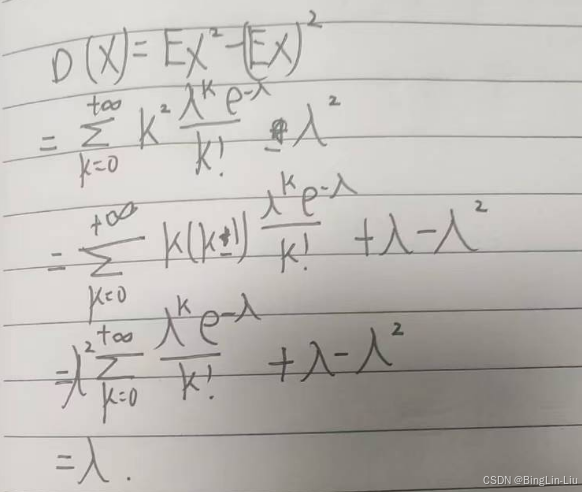 D(X) = EX² - (EX)²
= \sum_{k=0}^{+∞} k² \frac{λ^k e^{-λ}}{k!} - λ²
= \sum_{k=0}^{+∞} k(k-1) \frac{λ^k e^{-λ}}{k!} + λ - λ²
= λ² \sum_{k=0}^{+∞} \frac{λ^k e^{-λ}}{k!} + λ - λ²
= λ.
CSDN @BingLin-Liu